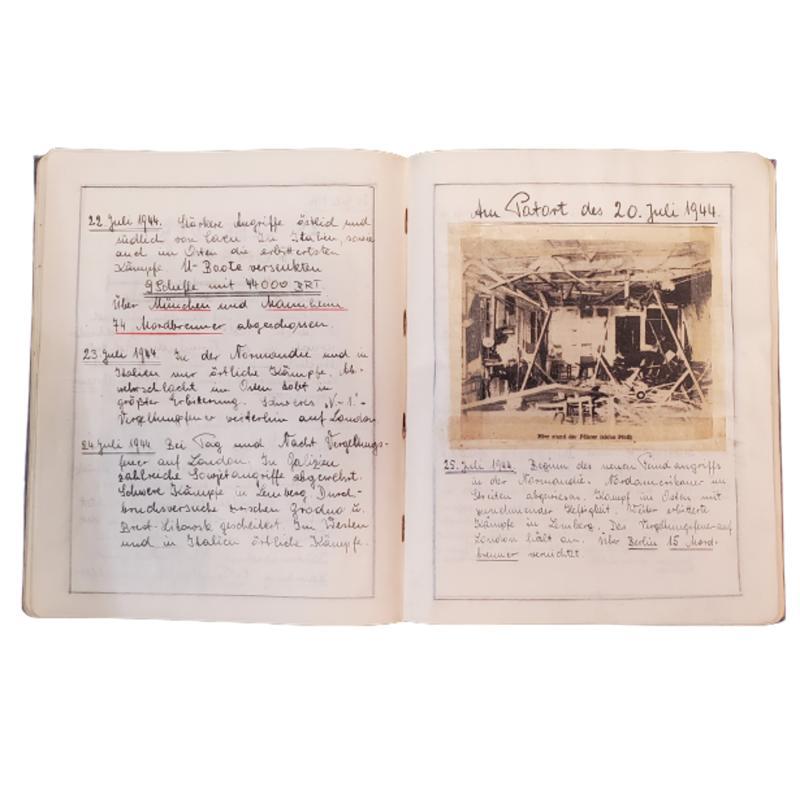 22 Juli 1944. Stärkere Angriffe östlich und
südlich von Caen. In Italien, sowie
auch im Osten die erbittertsten
Kämpfe. U-Boote versenkten
9 Schiffe mit 44000 BRT.
Über München und Mannheim
74 Mordbrenner abgeschossen.
23. Juli 1944 In der Normandie und in
Italien nur örtliche Kämpfe. Ab-
wehrschlacht im Osten tobt in
größter Erbitterung. Schweres "V-1."
Vergeltungsfeuer weiterhin auf London
24. Juli 1944 Bei Tag und Nacht Vergeltungs-
feuer auf London. In Galizien
zahlreiche Sowjetangriffe abgewehrt.
Schwere Kämpfe in Lemberg. Durch-
bruchsversuche zwischen Grodno u.
Brest-Litowsk gescheitert. Im Westen
und in Italien örtliche Kämpfe.
Am Tatort des 20. Juli 1944.
Hier stand der Führer
25. Juli 1944. Beginn des neuen Feindangriffs
in der Normandie. Nordamerikaner im
Streiten abgewiesen. Kampf im Osten mit
zunehmender Heftigkeit. Weiter erbitterte
Kämpfe in Lemberg. Das Vergeltungsfeuer auf
London hält an. Über Berlin 15 Mord-
brenner vernichtet